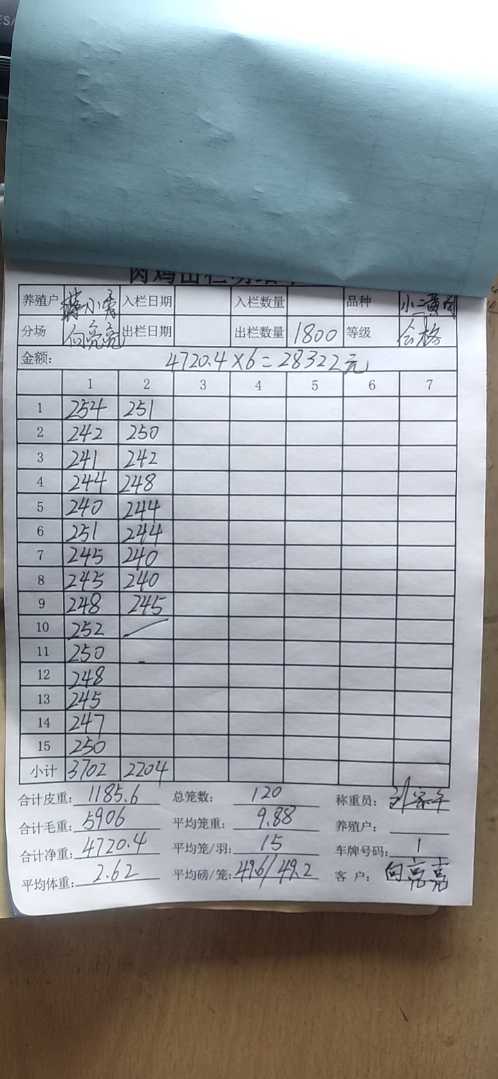 养殖户 入栏日期 入栏数量 品种
分场 向亮亮 出栏日期 出栏数量 1800 等级 合格
金额: 4720.4×6=28322元
1 2 3 4 5 6 7
1 254 251
2 242 250
3 241 242
4 244 248
5 240 244
6 251 244
7 245 240
8 245 240
9 248 245
10 252
11 250
12 248
13 245
14 247
15 250
小计 3702 2204
合计皮重: 1185.6 总笼数: 120 称重员:
合计毛重: 5906 平均笼重: 9.88 养殖户:
合计净重: 4720.4 平均笼/羽: 15 车牌号码: 1
平均体重: 2.62 平均磅/笼: 49.2 客 户: